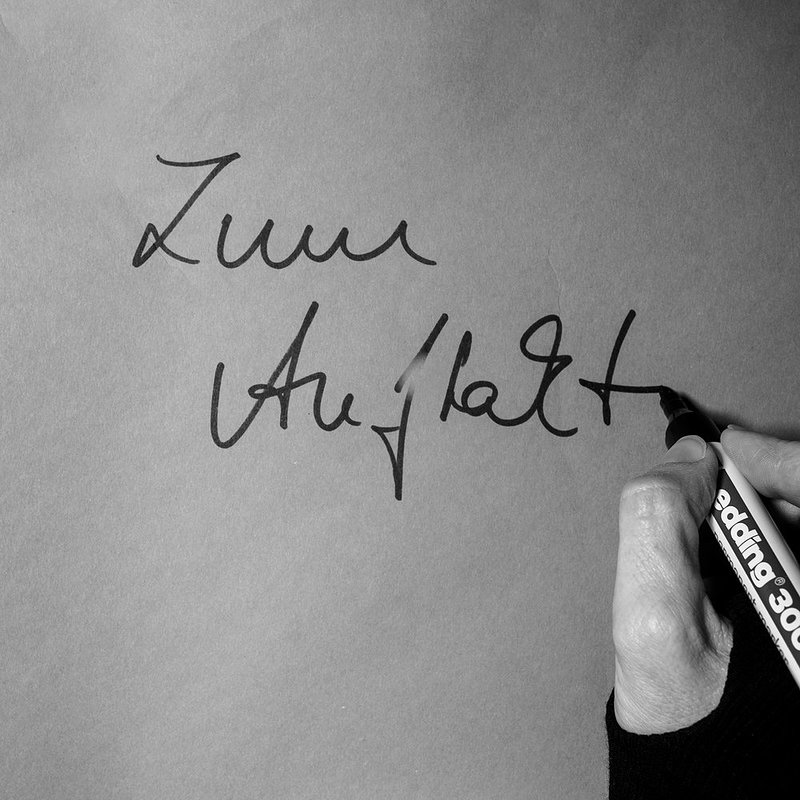 Zum
Auftakt
edding® 300